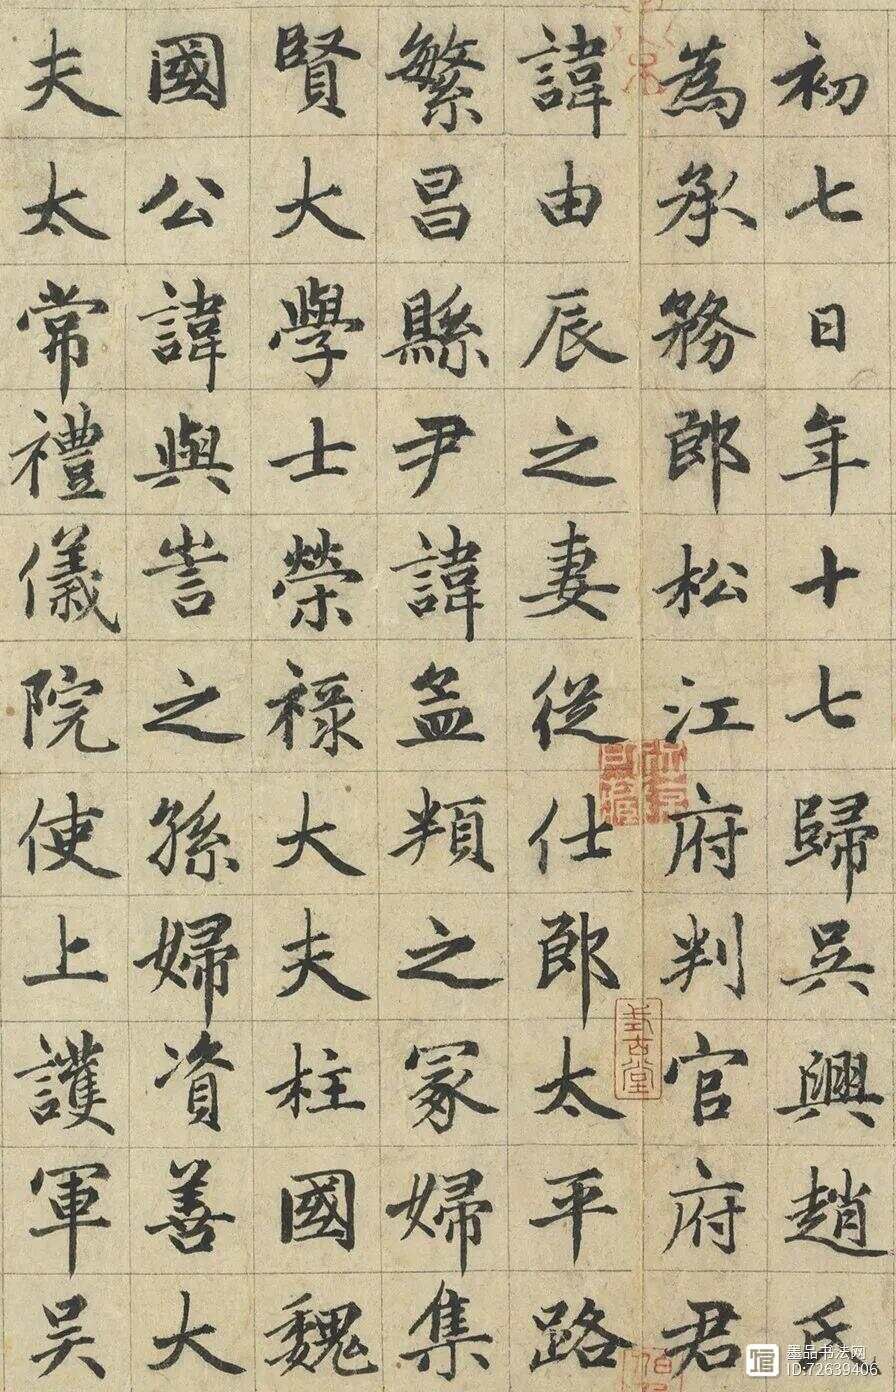 初七日年十七歸吳興趙氏
為承務郎松江府判官府君
諱由辰之妻從仕郎太平路
繁昌縣尹諱孟頖之冢婦集
賢大學士榮祿大夫柱國魏
國公諱與訔之孫婦資善大
夫太常禮儀院使上護軍吳
墨品书法网
ID:72639406